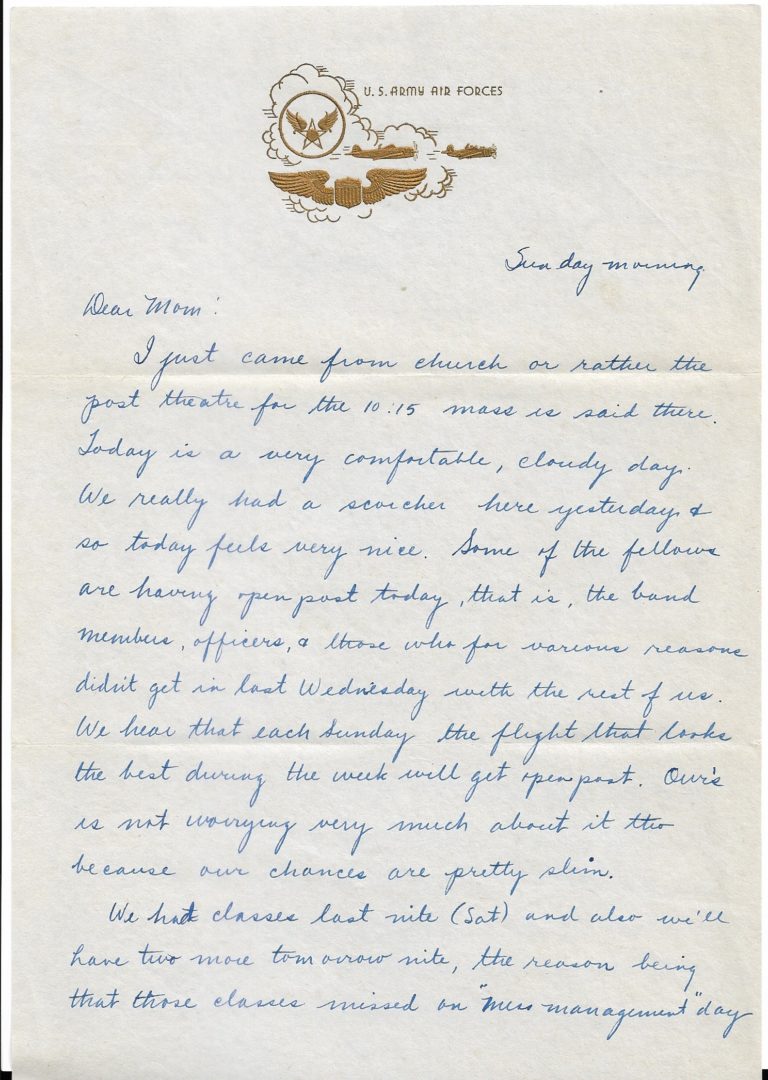 U. S. ARMY AIR FORCES
Sunday morning
Dear Mom:
I just came from church or rather the
post theatre for the 10:15 mass is said there.
Today is a very comfortable, cloudy day.
We really had a scorcher here yesterday &
so today feels very nice. Some of the fellows
are having open post today, that is, the band
members, officers, & those who for various reasons
didn't get in last Wednesday with the rest of us.
We hear that each Sunday the flight that looks
the best during the week will get open post. Our's
is not worrying very much about it tho
because our chances are pretty slim.
We had classes last nite (Sat) and also we'll
have two more tomorrow nite, the reason being
that those classes missed on "Mess management" day